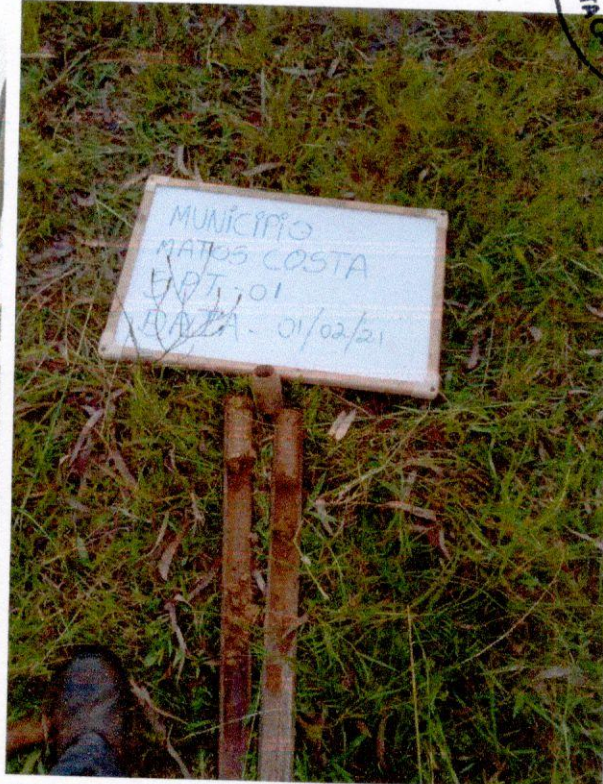 MUNICÍPIO
MATOS COSTA
SPT-01
DATA - 01/02/21